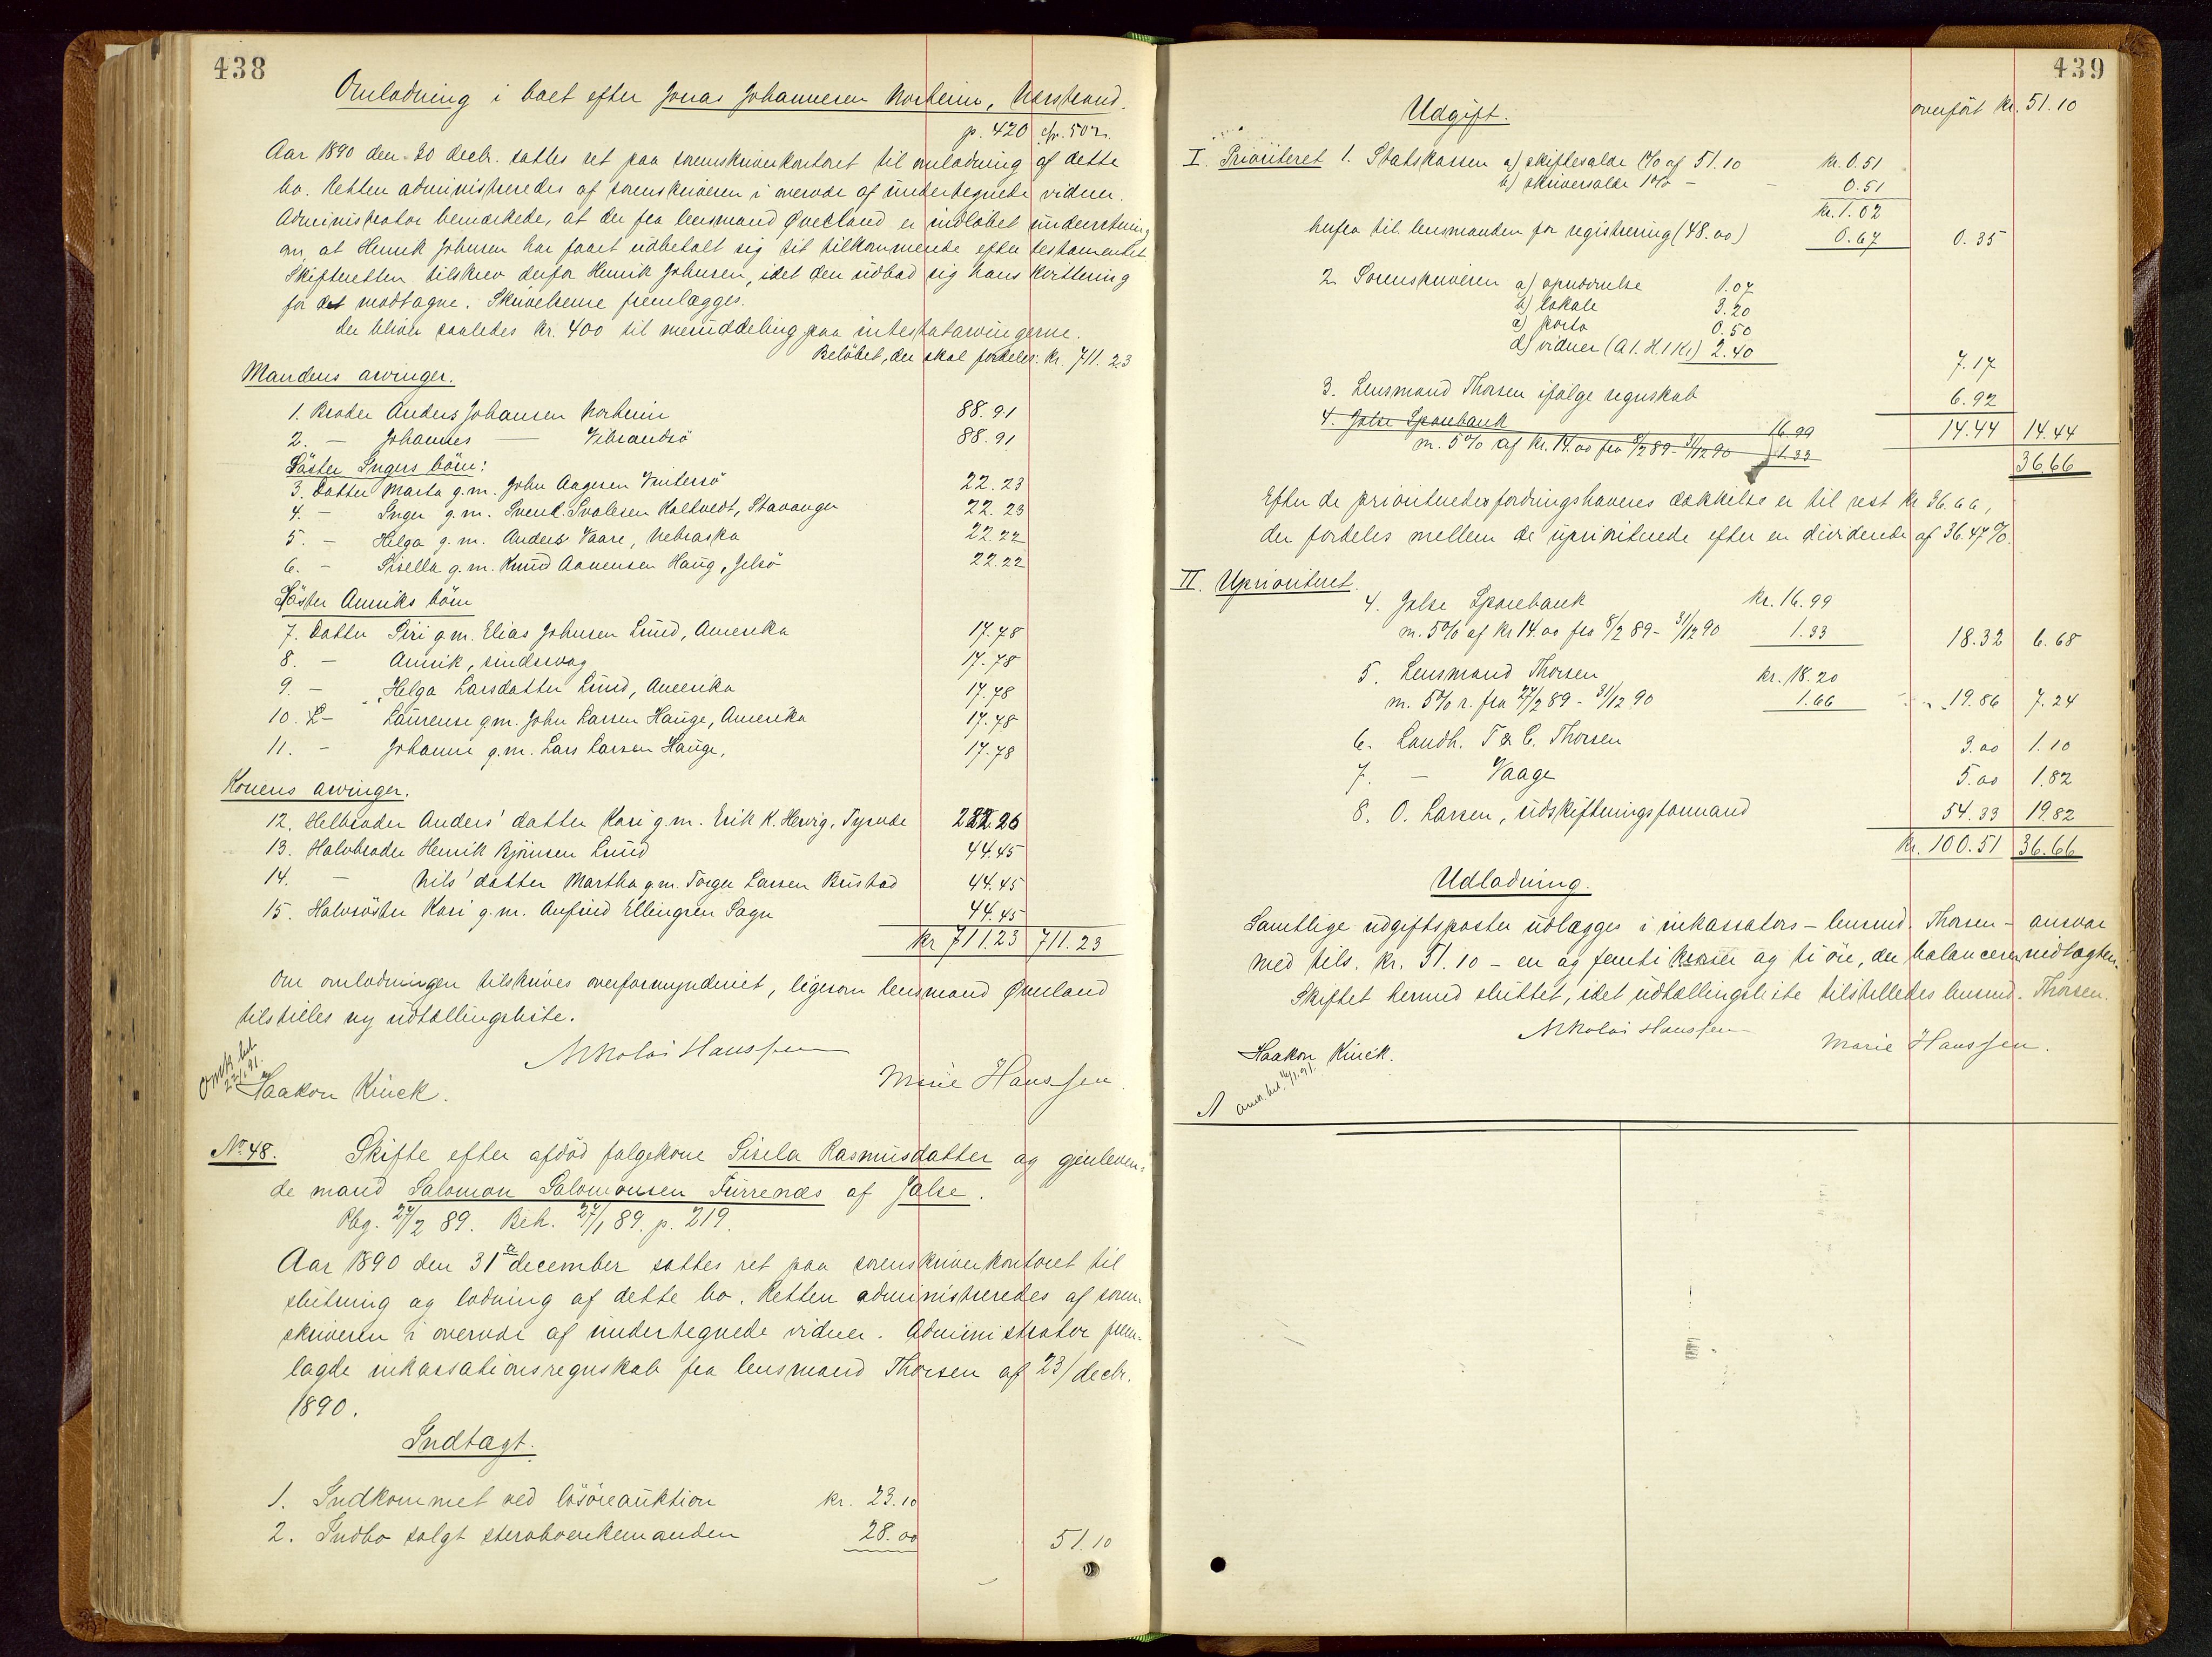 438
Omlodning i boet efter Jonas Johannesen Norheim, Nærstrand.
p. 420 cfr. 502.
Aar 1890 den 30 decbr. sattes ret paa sorenskriverkontoret til omlodning af dette
bo. Retten administreredes af sorenskriveren i overvær af undertegnede vidner.
Administrator bemærkede, at der fra lensmand Øverland er indløbet underretning
om, at Henrik Johnsen har faaet udbetalt sig sit tilkommende efter testamentet
Skifteretten tilskrev derfor Henrik Johnsen, idet den udbad sig hans kvittering
for det modtagne. Skrivelserne fremlægges.
Der bliver saaledes kr. 400 til meruddeling paa intestatarvingerne.
Beløbet, der skal fordeles: kr. 711.23
Mandens arvinger.
1. Broder Anders Johansen Norheim 88.91
2. — Johannes — Vibrandsø 88.91
Søster Ingers børn:
3. Datter Marta g.m. John Aagesen Vintersø 22.23
4. — Inger g.m. Svend Svalesen Kaltvedt, Stavanger 22.23
5. — Helga g.m. Anders Vaare, Nebraska 22.22
6. — Sisella g.m. Knud Aanensen Haug, Jelsø 22.22
Søster Anniks børn
7. Datter Siri g.m. Elias Johnsen Lund, Amerika 17.78
8. — Annik, sindssvag 17.78
9. — Helga Larsdatter Lund, Amerika 17.78
10. — Laurense g.m. John Larsen Hauge, Amerika 17.78
11. — Johanne g.m. Lars Larsen Hauge, 17.78
Konens arvinger.
12. Helbroder Anders' datter Kari g.m. Erik K. Hervig, Tysvær 222.26
13. Halvbroder Henrik Bjørnsen Lund 44.45
14. — Nils' datter Martha g.m. Torger Larsen Bustad 44.45
15. Halvsøster Kari g.m. Anfind Ellingsen Sagn 44.45
kr 711.23 711.23
Om omlodningen tilskrives overformynderiet, ligesom lensmand Øverland
tilstilles ny udtællingsliste.
Nikolai Hanssen
omk. bet.
22/1 91.
Haakon Kinck.
Marie Hanssen.
No 48. Skifte efter afdød følgekone Sisela Rasmusdatter og gjenleven-
de mand Salomon Salomonsen Furrenæs af Jælse.
Reg. 27/2 89. Beh. 27/1 89. p. 219.
Aar 1890 den 31te december sattes ret paa sorenskriverkontoret til
slutning og lodning af dette bo. Retten administreredes af soren-
skriveren i overvær af undertegnede vidner. Administrator frem-
lagde inkassationsregnskab fra lensmand Thorsen af 23/decbr.
1890.
Indtægt.
1. Indkommet ved løsøreauktion kr. 23.10
2. Indbo solgt stervboenkemanden 28.00 51.10
439
overført kr. 51.10
Udgift.
I. Prioriteret 1. Statskassen a) skiftesalær 1% af 51.10 kr. 0.51
b) skriversalær 1% — — 0.51
kr. 1.02
herfra til lensmanden for registrering (48.00) 0.67 0.35
2. Sorenskriveren a) opnævnelse 1.07
b) lokale 3.20
c) porto 0.50
d) vidner (A 1. H. 1 Kr) 2.40
7.17
3. Lensmand Thorsen ifølge regnskab 6.92
4. Jælse Sparebank 16.99 14.44 14.44
m. 5% af kr. 14.00 fra 8/2 89 - 31/12 90 1.33
36.66
Efter de prioriterede fordringshaveres dækkelse er til rest kr 36.66,
der fordeles mellem de uprioriterede efter en dividende af 36.47%.
II. Uprioriteret.
4. Jælse Sparebank kr. 16.99
m. 5% af kr 14.00 fra 8/2 89 - 31/12 90 1.33 18.32 6.68
5. Lensmand Thorsen kr. 18.20
m. 5% r. fra 27/2 89 - 31/12 90 1.66 19.86 7.24
6. Landh. T & C. Thorsen 3.00 1.10
7. — Vaage 5.00 1.82
8. O. Larsen, udskiftningsformand 54.33 19.82
Kr. 100.51 36.66
Udlodning.
Samtlige udgiftsposter udlægges i inkassators - lensmd. Thorsen - ansvar
med tils. kr. 51.10 - en og femti kroner og ti øre, der balancerer indtægten.
Skiftet hermed sluttet, idet udtællingsliste tilstilledes lensmd. Thorsen.
Nikolai Hanssen
Haakon Kinck.
Marie Hanssen.